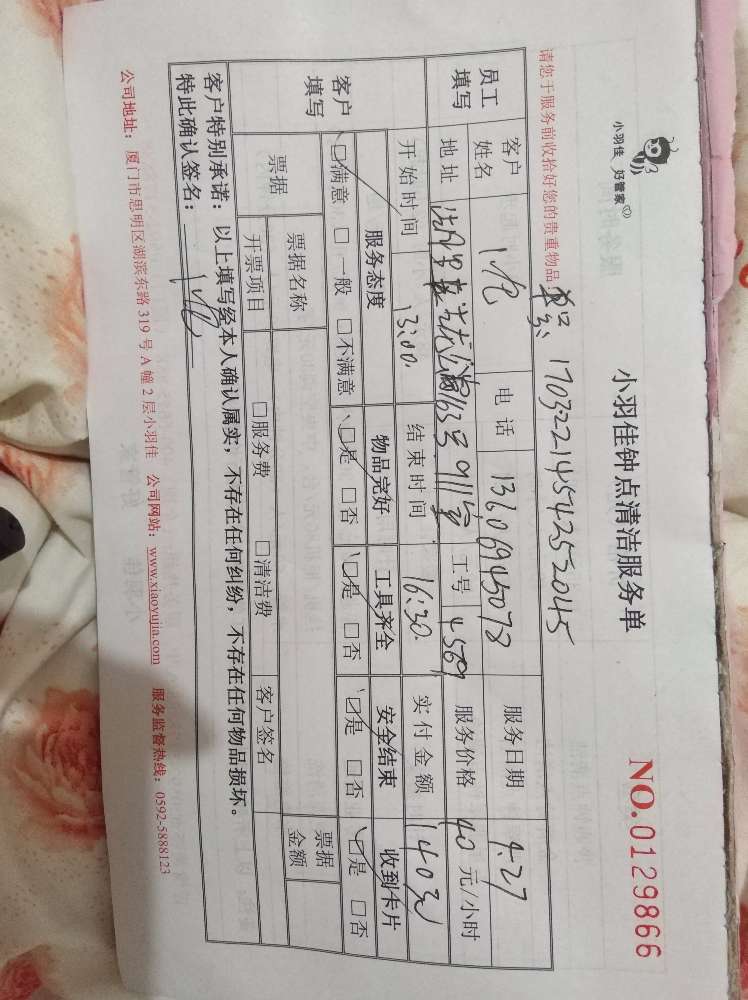 小羽佳 好管家
小羽佳钟点清洁服务单
NO.0129866
请您于服务前收拾好您的贵重物品!
单号: 1703221454252045
员工填写
客户姓名 电话 13606945078 服务日期 4.27
地址 163号911室 工号 4569 服务价格 40 元/小时
开始时间 13:00. 结束时间 16:30. 实付金额 140元
客户填写
服务态度 物品完好 工具齐全 安全结束 收到卡片
☑满意 □一般 □不满意 ☑是 □否 ☑是 □否 ☑是 □否 ☑是 □否
票据 票据名称 票据金额
开票项目 □服务费 □清洁费 客户签名
客户特别承诺:以上填写经本人确认属实,不存在任何纠纷,不存在任何物品损坏。
特此确认签名:
公司地址:厦门市思明区湖滨东路319号A幢2层小羽佳 公司网站:www.xiaoyujia.com 服务监督热线:0592-5888123